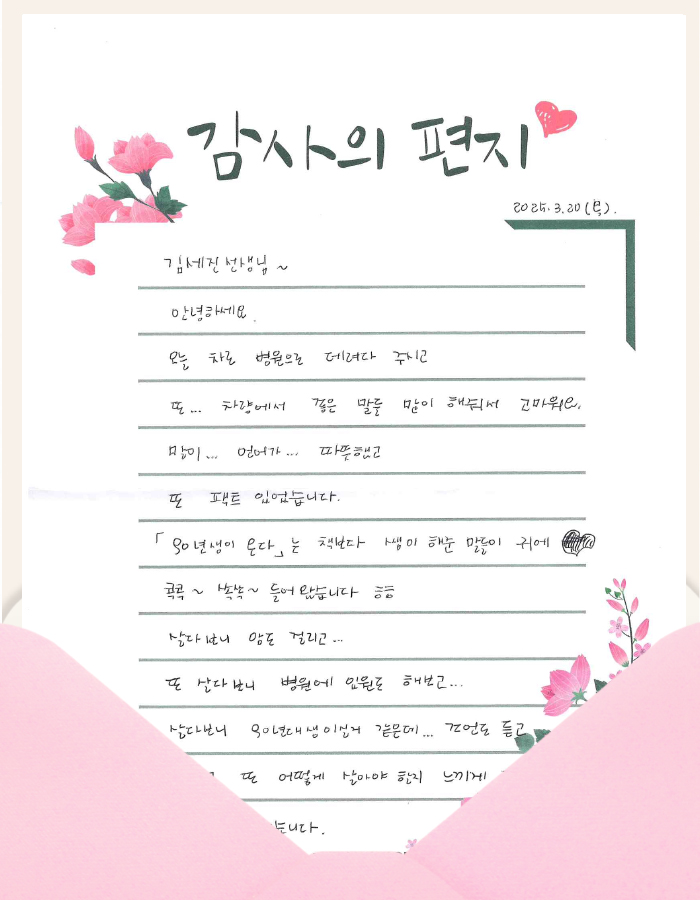 감사의 편지
2025.3.20(목).
김세진 선생님 ~
안녕하세요.
오늘 차로 병원으로 데려다 주시고
또... 차량에서 좋은 말들 많이 해줘서 고마워요.
많이... 언어가... 따뜻했고
또 팩트 있었습니다.
「90년생이 온다」는 책보다 샘이 해준 말들이 귀에
콕콕~ 쏙쏙~ 들어 왔습니다 ㅎㅎ
살다보니 암도 걸리고...
또 살다보니 병원에 입원도 해보고...
살다보니 90년대생 이신거 같은데... 조언도 듣고
또 어떻게 살아야 한지 느끼게
습니다.